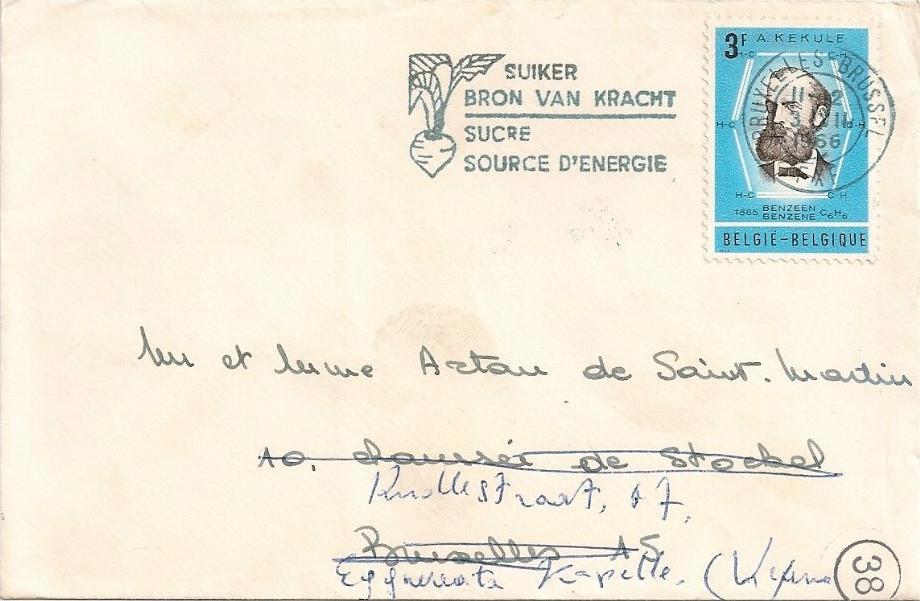 SUIKER
BRON VAN KRACHT
SUCRE
SOURCE D'ENERGIE
3F A. KEKULE
H-C C-H
H-C C-H
H-C C-H
1865 BENZEEN BENZENE C6H6
BELGIË-BELGIQUE
BRUXELLES BRUSSEL
1966
Mr et Mme Aztan de Saint. Martin
10. chaussée de Stockel
Knollestraat, 17,
Bruxelles 15
Kapelle.
38